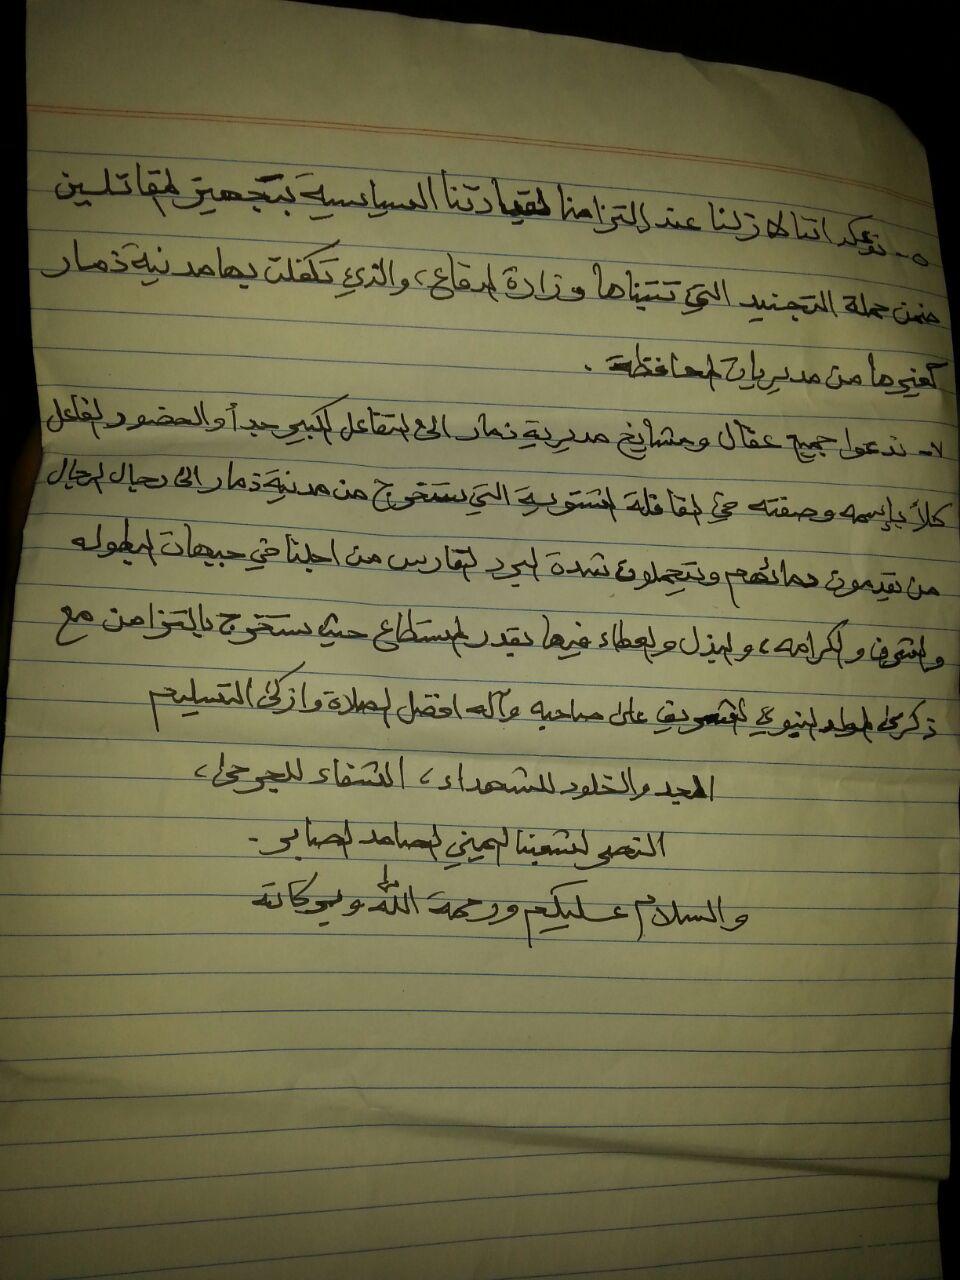 ٥- نؤكد اننا لا زلنا عند التزامنا لقيادتنا السياسية بتجهيز المقاتلين
ضمن حملة التجنيد التي تتبناها وزارة الدفاع، والذي تكفلت بها مدنية ذمار
كغيرها من مديريات المحافظة .
٧- ندعوا جميع عقال ومشايخ مديرية ذمار الى التفاعل الكبير جداً والحضور الفاعل
كلاً بإسمه وصفته في القافلة الشتوية التي ستخرج من مدنية ذمار الى رجال الرجال
من يقدمون دمائهم ويتحملون شدة البرد القارس من اجلنا في جبهات البطوله
والشرف والكرامه، والبذل والعطاء فيها بقدر المستطاع حيث ستخرج بالتزامن مع
ذكرى المولد النبوي الشريف على صاحبه وآله افضل الصلاة وازكى التسليم
المجد والخلود للشهداء، الشفاء للجرحى،
النصر لشعبنا اليمني الصامد الصابر.
والسلام عليكم ورحمة الله وبركاتة